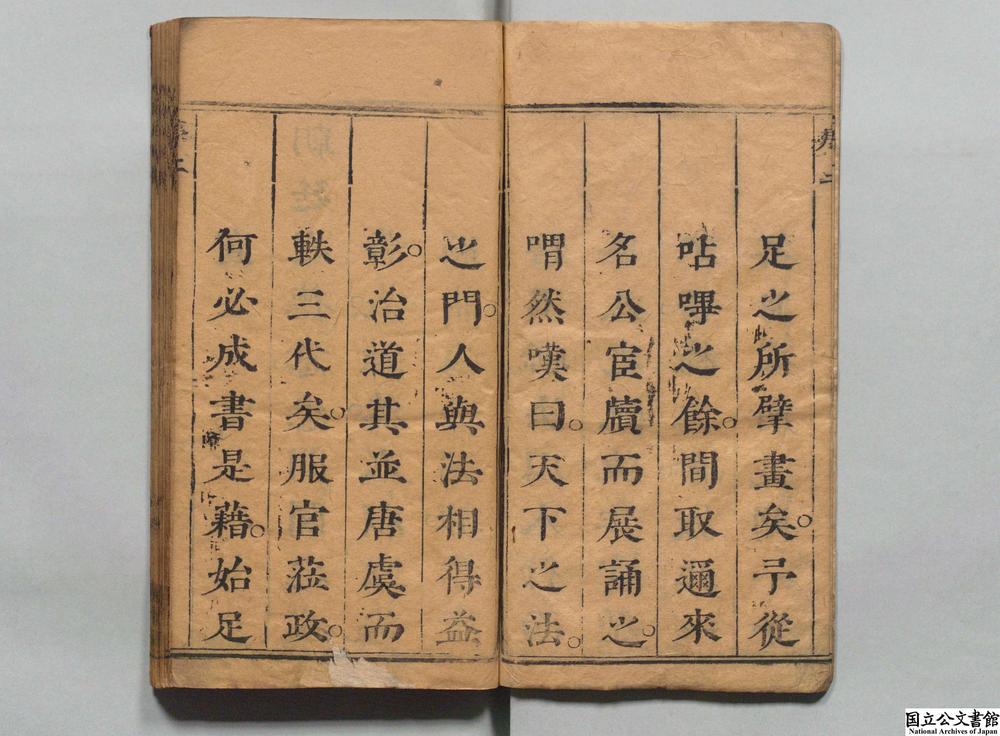 足之所擘畫矣○予從
呫嗶之餘○間取邇來
名公宦牘而展誦之○
喟然嘆曰○天下之法○
之門○人與法相得益
彰○治道其並唐虞而
軼三代矣○服官蒞政○
何必成書是藉○始足
序二
国立公文書館
National Archives of Japan